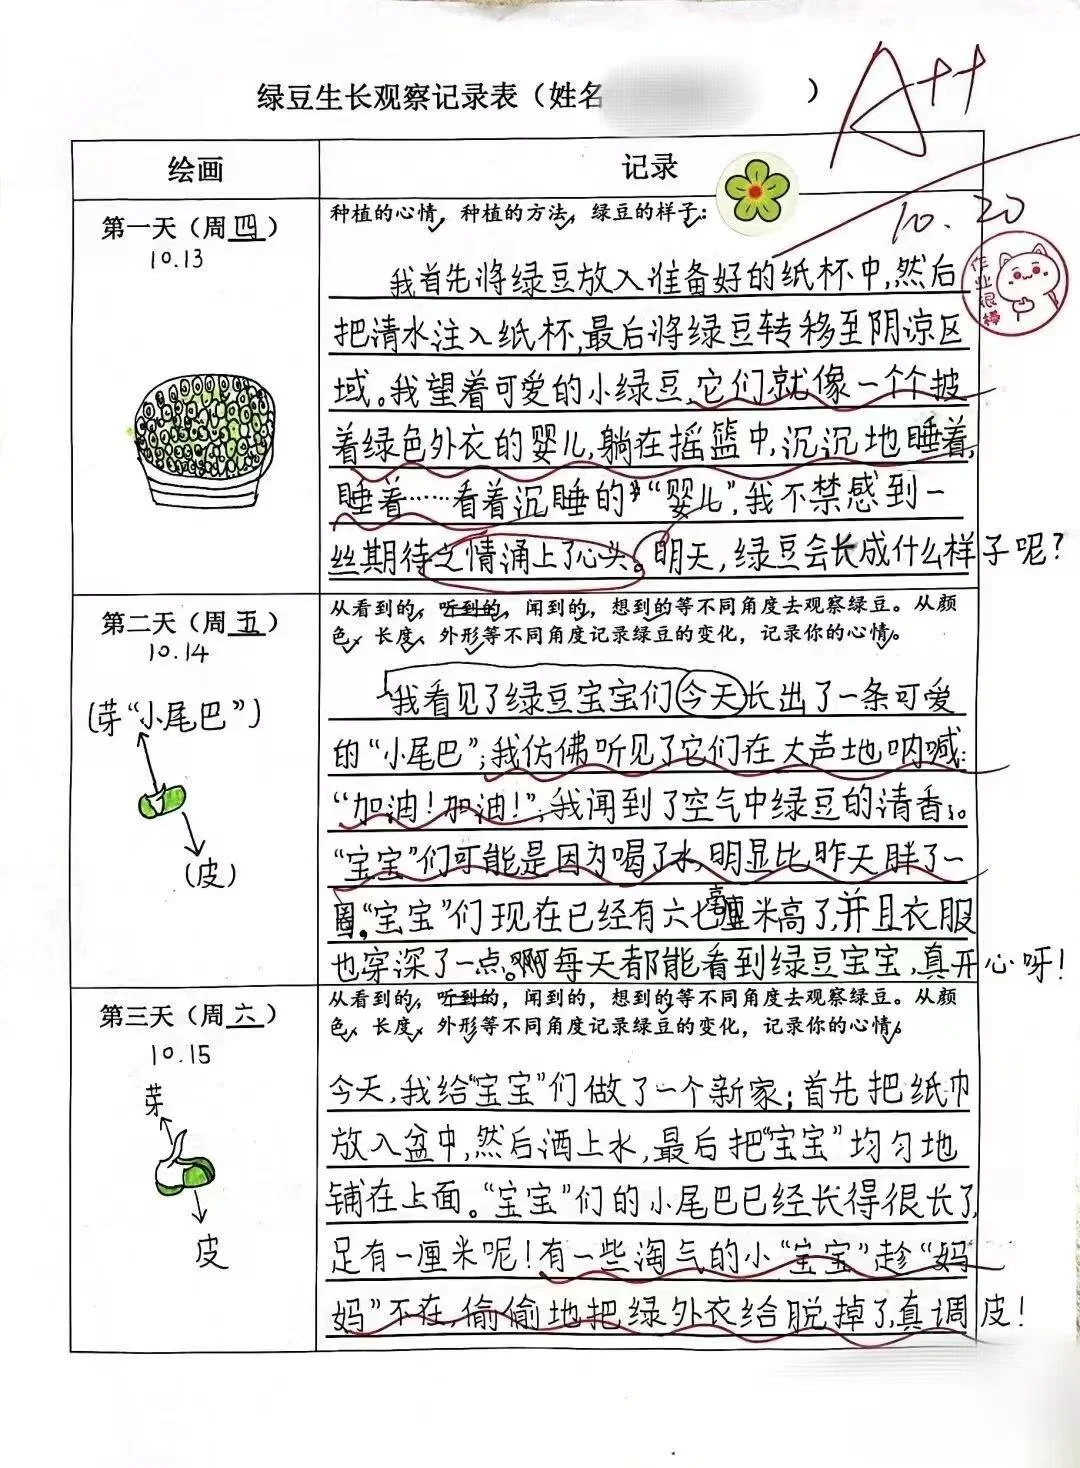 绿豆生长观察记录表（姓名 ）
A++
绘画
记录
10.20
作业很棒
第一天（周四）
10.13
种植的心情，种植的方法，绿豆的样子：
我首先将绿豆放入准备好的纸杯中，然后
把清水注入纸杯，最后将绿豆转移至阴凉区
域。我望着可爱的小绿豆，它们就像一个个披
着绿色外衣的婴儿，躺在摇篮中，沉沉地睡着，
睡着……看着沉睡的“婴儿”，我不禁感到一
丝期待之情涌上了心头。明天，绿豆会长成什么样子呢？
第二天（周五）
10.14
（芽“小尾巴”）
（皮）
从看到的，听到的，闻到的，想到的等不同角度去观察绿豆。从颜
色、长度、外形等不同角度记录绿豆的变化，记录你的心情。
我看见了绿豆宝宝们今天长出了一条可爱
的“小尾巴”；我仿佛听见了它们在大声地呐喊：
“加油！加油！”；我闻到了空气中绿豆的清香；。
“宝宝”们可能是因为喝了水，明显比昨天胖了一
圈，“宝宝”们现在已经有六七毫米高了，并且衣服
也穿深了一点。啊每天都能看到绿豆宝宝，真开心呀！
第三天（周六）
10.15
芽
皮
从看到的，听到的，闻到的，想到的等不同角度去观察绿豆。从颜
色、长度、外形等不同角度记录绿豆的变化，记录你的心情。
今天，我给“宝宝”们做了一个新家；首先把纸巾
放入盆中，然后洒上水，最后把“宝宝”均匀地
铺在上面。“宝宝”们的小尾巴已经长得很长了，
足有一厘米呢！有一些淘气的小“宝宝”趁“妈
妈”不在，偷偷地把绿外衣给脱掉了，真调皮！